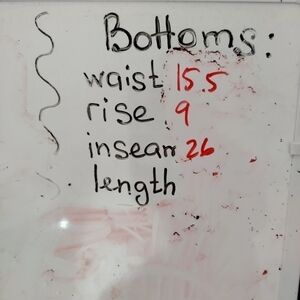 Bottoms:
waist 15.5
rise 9
inseam 26
length